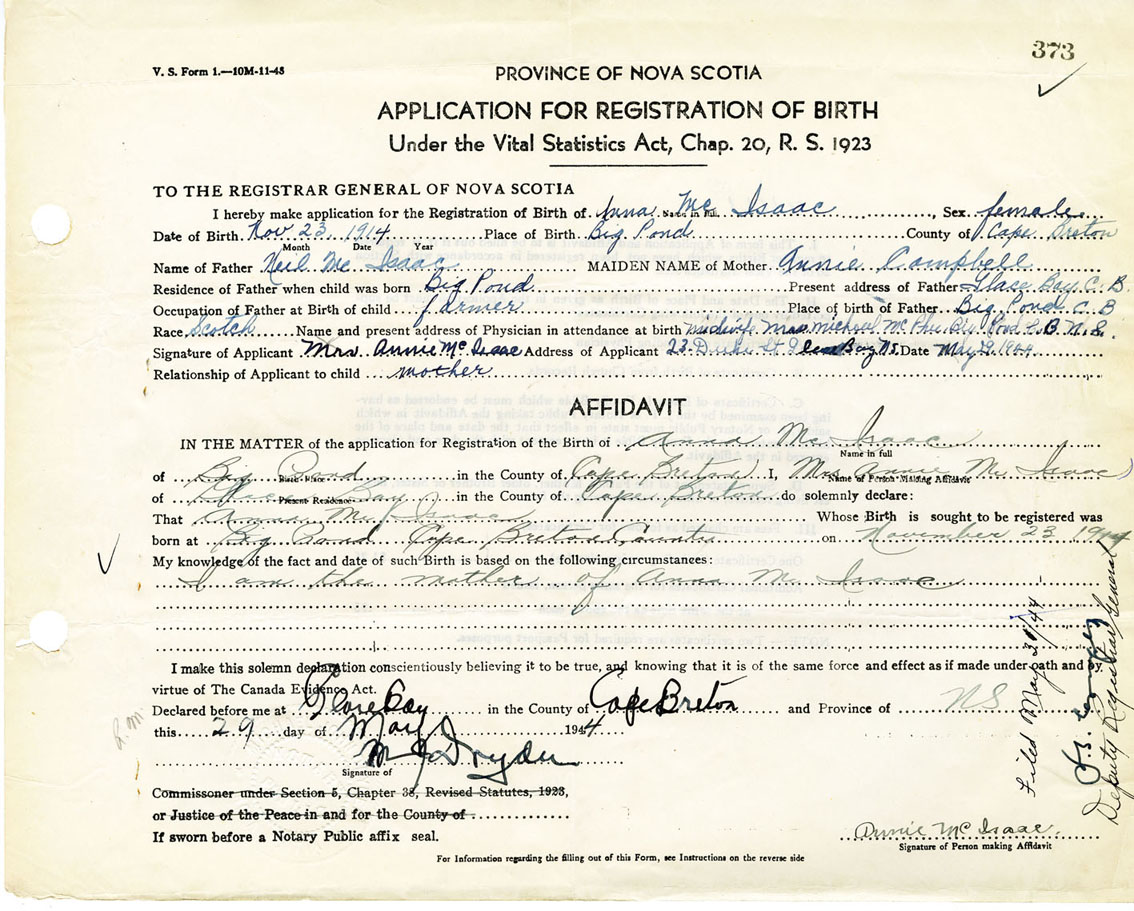 373
V. S. Form 1.—10M-11-43
PROVINCE OF NOVA SCOTIA
APPLICATION FOR REGISTRATION OF BIRTH
Under the Vital Statistics Act, Chap. 20, R. S. 1923
TO THE REGISTRAR GENERAL OF NOVA SCOTIA
I hereby make application for the Registration of Birth of Anna Mc Isaac, Sex female
Name in full
Date of Birth Nov 23, 1914 Place of Birth Big Pond County of Cape Breton
Month Date Year
Name of Father Neil Mc Isaac MAIDEN NAME of Mother Annie Campbell
Residence of Father when child was born Big Pond Present address of Father Glace Bay C. B.
Occupation of Father at Birth of child farmer Place of birth of Father Big Pond C. B
Race Scotch Name and present address of Physician in attendance at birth midwife Mrs. Michael Mc Big Pond C. B. N. S.
Signature of Applicant Mrs. Annie Mc Isaac Address of Applicant 23 St Glace Bay N.S. Date May 29,
Relationship of Applicant to child mother
AFFIDAVIT
IN THE MATTER of the application for Registration of the Birth of Anna Mc Isaac
Name in full
of Big Pond in the County of Cape Breton I, Mrs Annie Mc Isaac
Birth Place Name of Person Making Affidavit
of Glace Bay in the County of Cape Breton do solemnly declare:
Present Residence
That Anna Mc Isaac Whose Birth is sought to be registered was
born at Big Pond Cape Breton County on November 23 1914
My knowledge of the fact and date of such Birth is based on the following circumstances:
I am the mother of Anna Mc Isaac
I make this solemn declaration conscientiously believing it to be true, and knowing that it is of the same force and effect as if made under oath and by
virtue of The Canada Evidence Act.
Declared before me at Glace Bay in the County of Cape Breton and Province of NS
this 29 day of May 1944
M Dryden
Signature of
Commissoner under Section 5, Chapter 38, Revised Statutes, 1923,
or Justice of the Peace in and for the County of
If sworn before a Notary Public affix seal.
Annie Mc Isaac
Signature of Person making Affidavit
For Information regarding the filling out of this Form, see Instructions on the reverse side
Filed May 31/44
Deputy Registrar General